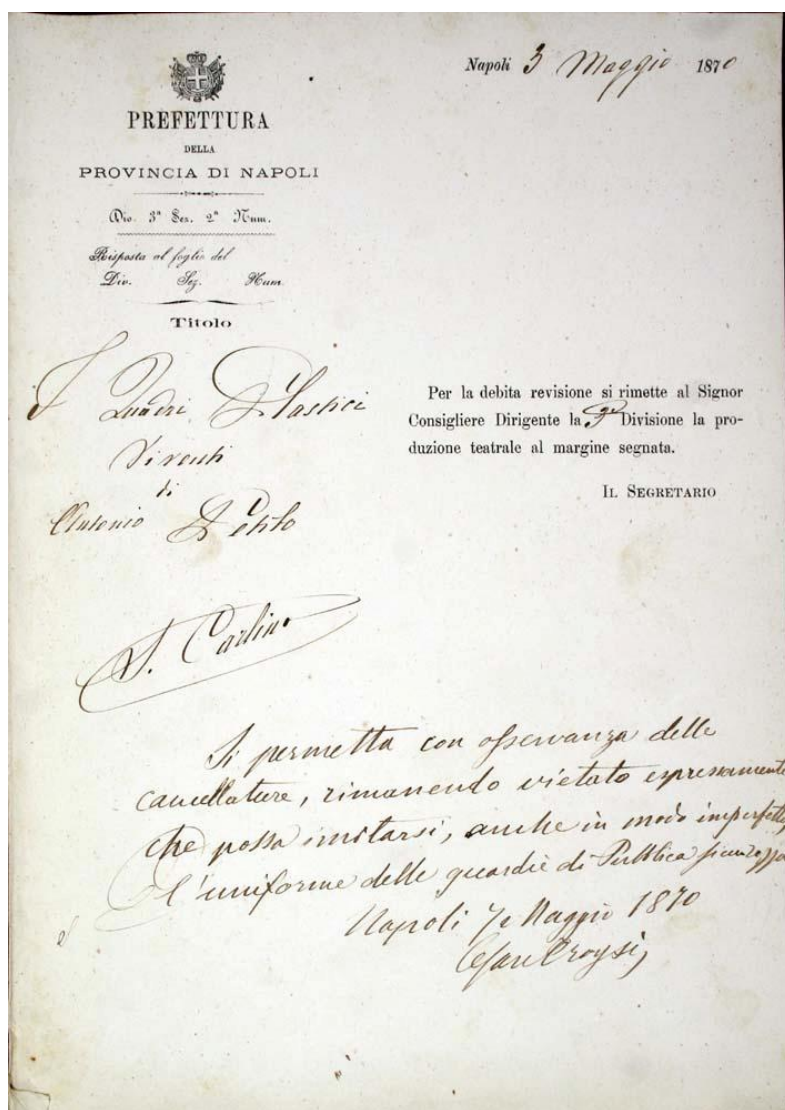 Napoli 3 Maggio 1870
PREFETTURA
DELLA
PROVINCIA DI NAPOLI
Div. 3ª Sez. 2ª Num.
Risposta al foglio del
Div. Sez. Num.
Titolo
I Quadri Plastici
Viventi
di
Antonio Petito
S. Carlino
Per la debita revisione si rimette al Signor
Consigliere Dirigente la 3ª Divisione la pro-
duzione teatrale al margine segnata.
IL SEGRETARIO
Si permetta con osservanza delle
cancellature, rimanendo vietato espressamente
che possa imitarsi, anche in modo imperfetto,
l'uniforme delle guardie di Pubblica sicurezza
Napoli 7 Maggio 1870